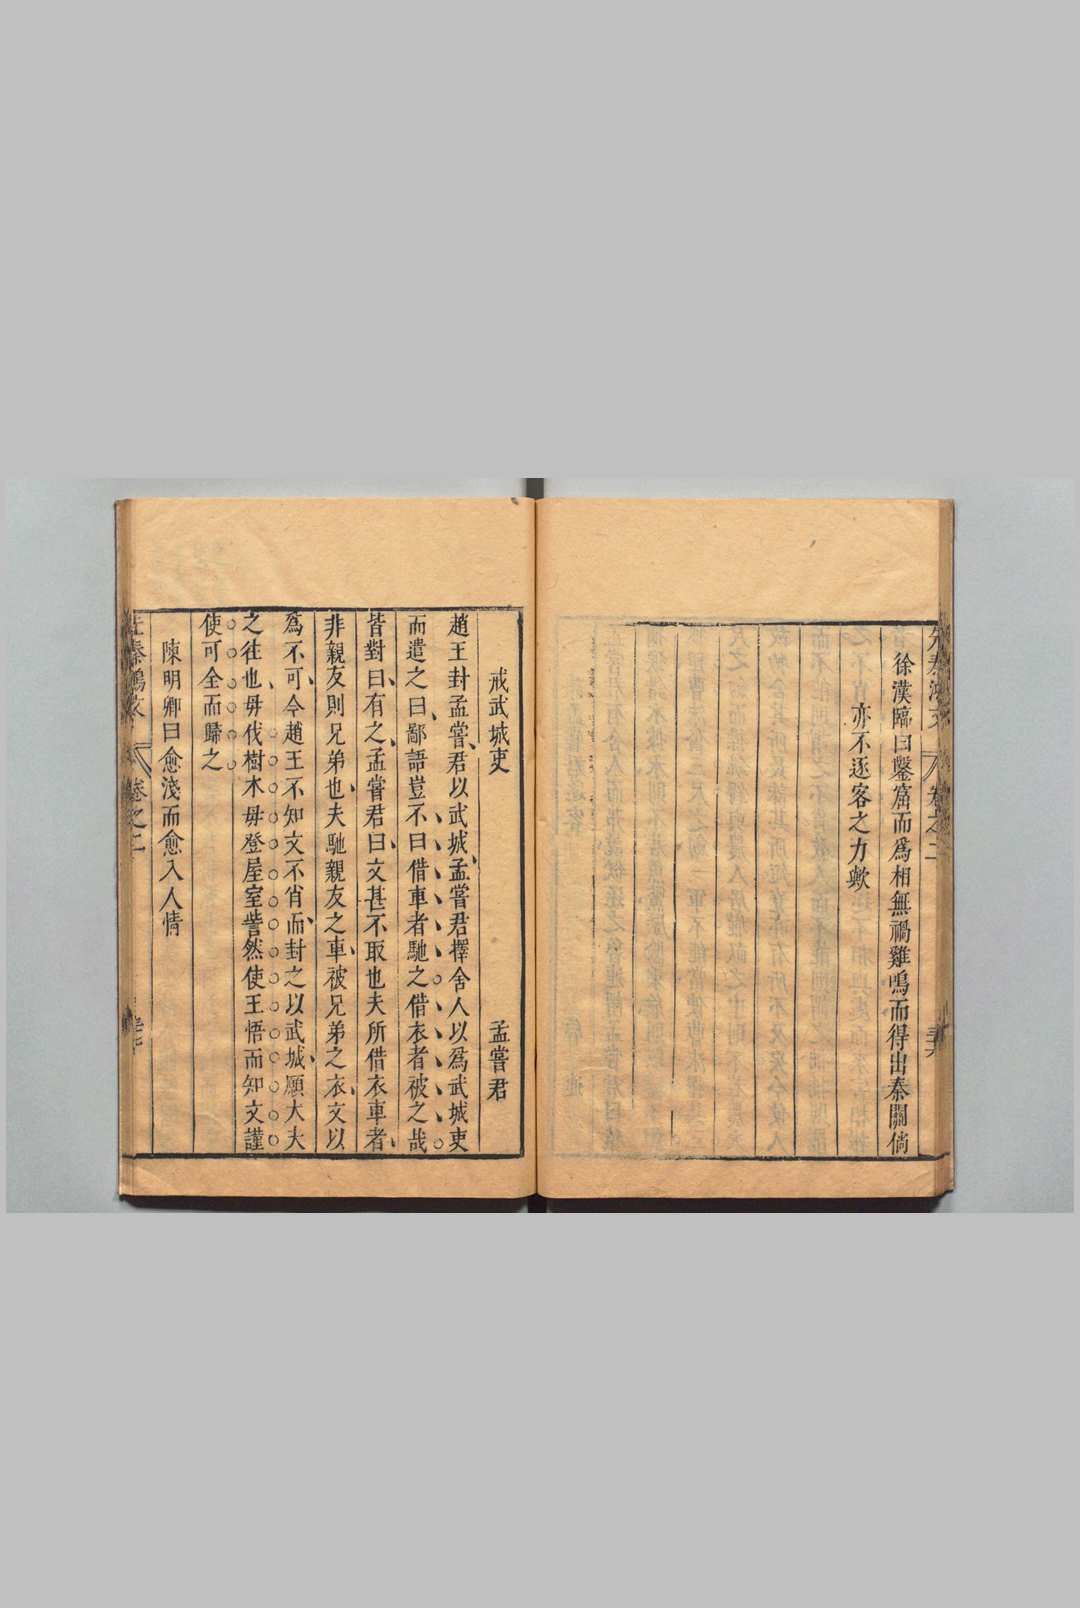 先秦鴻文
卷之二
三十六
徐漢臨曰鑿窟而爲相無禍雞鳴而得出秦關倘
亦不逐客之力歟
戒武城吏
孟嘗君
趙王封孟嘗君以武城孟嘗君擇舍人以爲武城吏
而遣之曰鄙語豈不曰借車者馳之借衣者被之哉
皆對曰有之孟嘗君曰文甚不取也夫所借衣車者
非親友則兄弟也夫馳親友之車被兄弟之衣文以
爲不可今趙王不知文不肖而封之以武城願大夫
之往也毋伐樹木毋登屋室訾然使王悟而知文謹
使可全而歸之
陳明卿曰愈淺而愈入人情
先秦鴻文
卷之二